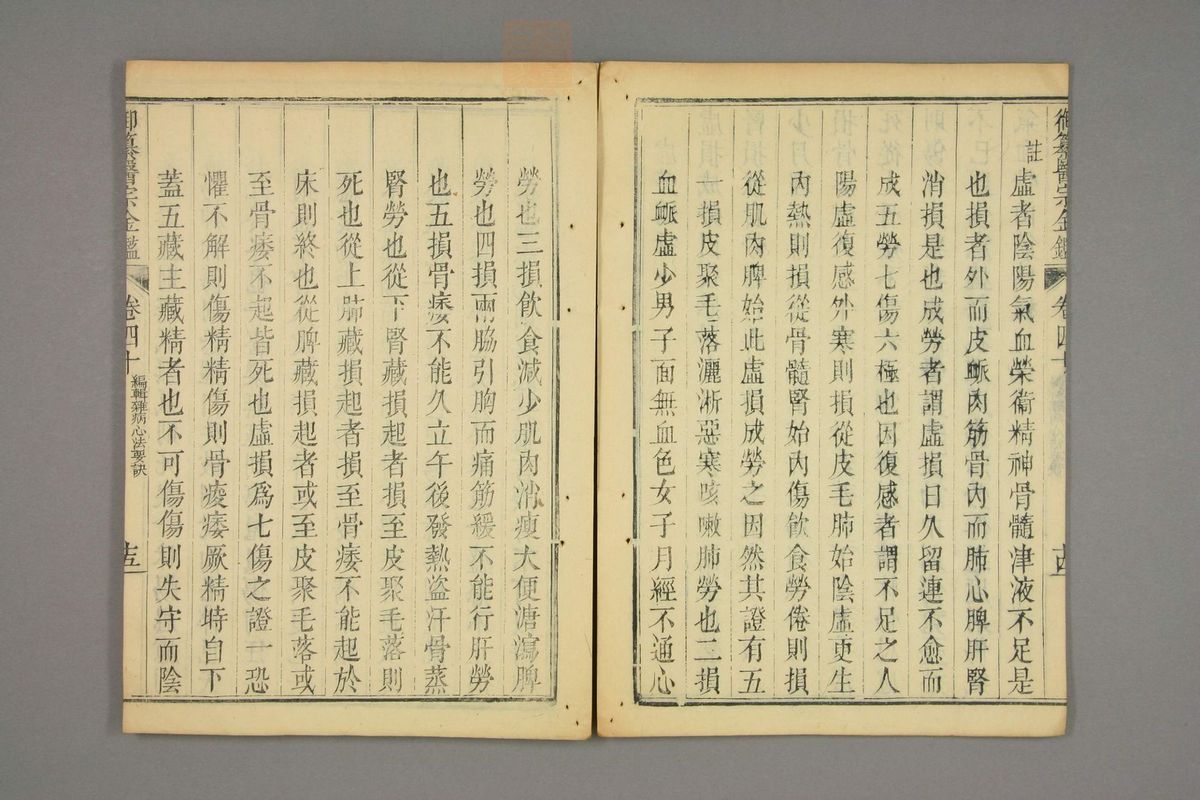 御纂醫宗金鑑 卷四十 十四
註
虛者陰陽氣血榮衞精神骨髓津液不足是
也損者外而皮脈肉筋骨內而肺心脾肝腎
消損是也成勞者謂虛損日久留連不愈而
成五勞七傷六極也因復感者謂不足之人
陽虛復感外寒則損從皮毛肺始陰虛更生
內熱則損從骨髓腎始內傷飲食勞倦則損
從肌肉脾始此虛損成勞之因然其證有五
一損皮聚毛落灑淅惡寒咳嗽肺勞也二損
血脈虛少男子面無血色女子月經不通心
勞也三損飲食減少肌肉消瘦大便溏瀉脾
勞也四損兩脇引胸而痛筋緩不能行肝勞
也五損骨痿不能久立午後發熱盜汗骨蒸
腎勞也從下腎藏損起者損至皮聚毛落則
死也從上肺藏損起者損至骨痿不能起於
床則終也從脾藏損起者或至皮聚毛落或
至骨痿不起皆死也虛損爲七傷之證一恐
懼不解則傷精精傷則骨痠痿厥精時自下
蓋五藏主藏精者也不可傷傷則失守而陰
御纂醫宗金鑑 卷四十 編輯雜病心法要訣 十五